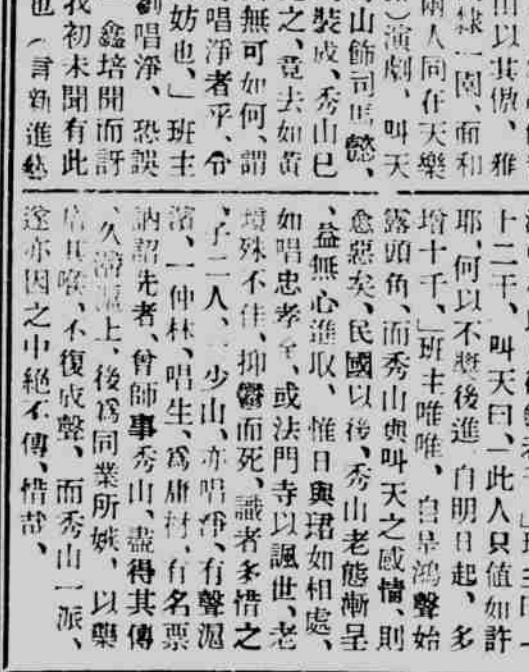 出以其傲、雅
隸一園、而和
兩人同在天樂
演劇、叫天
山飾司馬懿、
裝成、秀山已
之、竟去如黃
無可如何、謂
唱淨者乎、令
妨也、」班主
唱淨、恐誤
鑫培聞而訝
我初未聞有此
也（言新進藝
十二千、叫天曰、一此人只值如許
耶、何以不獎後進、自明日起、多
增十千、」班主唯唯、自是鴻聲始
露頭角、而秀山與叫天之感情、則
愈惡矣、民國以後、秀山老態漸呈
、益無心進取、惟日與珺如相處、
如唱忠孝全、或法門寺以諷世、老
境殊不佳、抑鬱而死、識者多惜之
、子二人、一少山、亦唱淨、有聲滬
濱、一仲林、唱生、爲庸材、有名票
訥詔先者、曾師事秀山、盡得其傳
、久滯滬上、後爲同業所嫉、以藥
其喉、不復成聲、而秀山一派、
遂亦因之中絕不傳、惜哉、